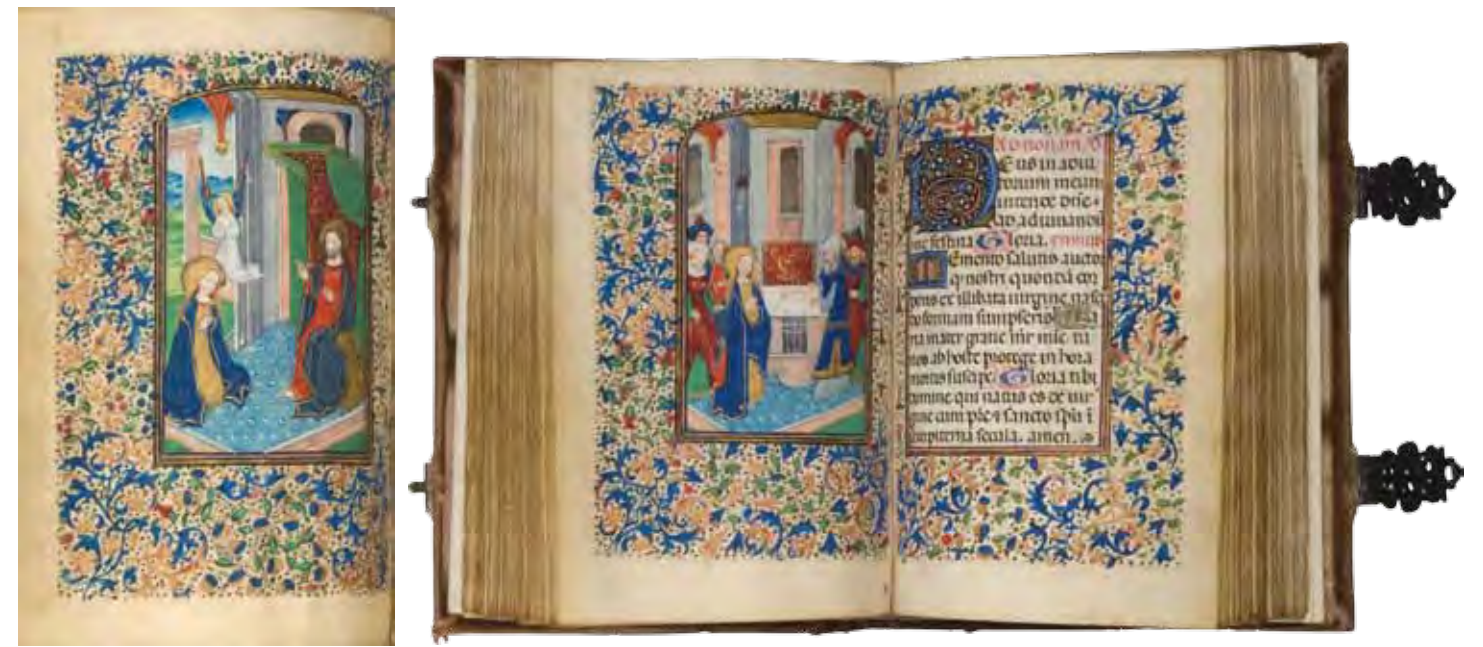 Ad nonam
Eus in adiu
torium meum
intende Dñe
ad adiuvandū
me festina Gloria.
Emento salutis auctor
q nostri quondā cor
poris ex illibata virgine nasc
do formam sumpseris
ria mater gratie mr̄ mie tu
nos ab hoste protege in hora
mortis suscipe. Gloria tibi
domine qui natus es de vir
gine cum p̄re &amp; sancto sp̄u ī
sempiterna secula. amen.